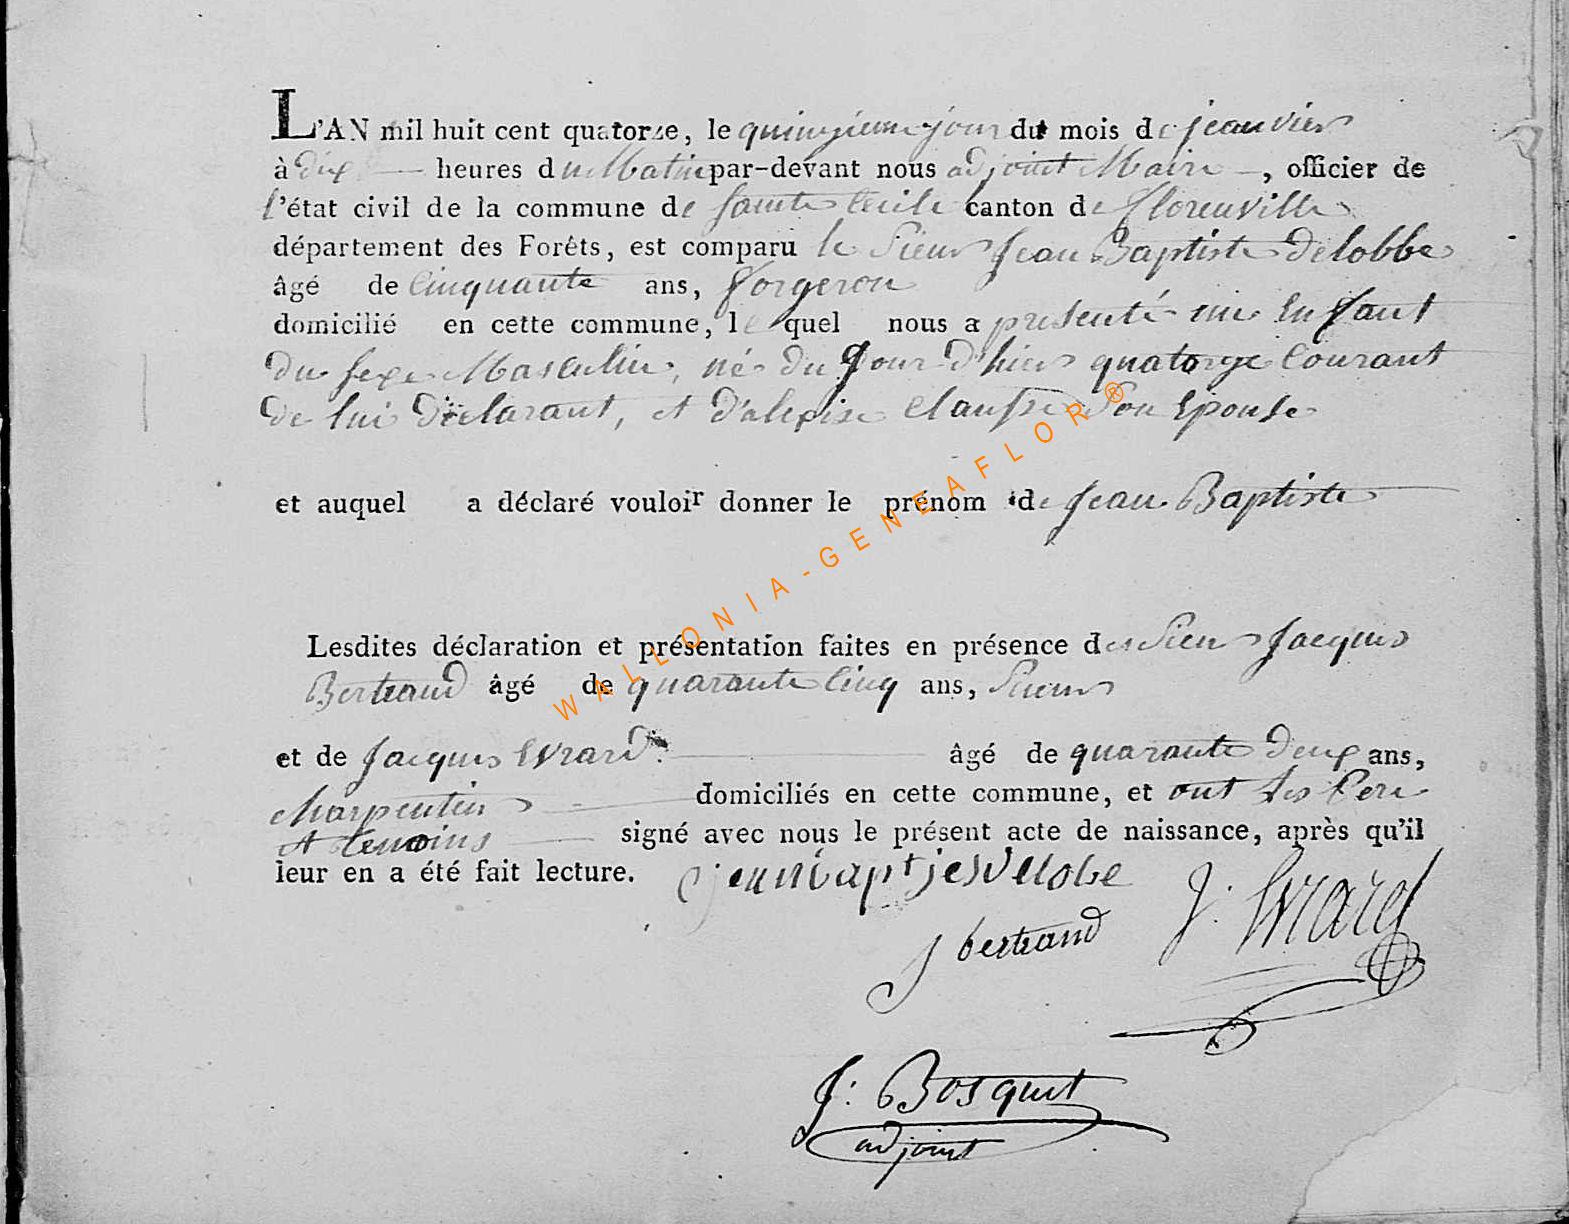 L'AN mil huit cent quatorze, le quinzieme jour du mois de jeanvier
à dix heures du Matin par-devant nous adjoint Maire, officier de
l'état civil de la commune de sainte Cecile canton de florenville
département des Forêts, est comparu le Sieur Jean Baptiste Delobbe
âgé de Cinquante ans, forgeron
domicilié en cette commune, le quel nous a presenté un Enfant
du sexe Masculin, né du Jour d'hier quatorze Courant
de lui déclarant, et d'alexise Clausse Son Epouse
et auquel a déclaré vouloir donner le prénom de Jean Baptiste
Lesdites déclaration et présentation faites en présence des Sieur Jacques
Bertrand âgé de quarante Cinq ans,
et de Jacques Evrard âgé de quarante Deux ans,
charpentier domiciliés en cette commune, et ont les Pere
et temoins signé avec nous le présent acte de naissance, après qu'il
leur en a été fait lecture.
J. Evrard
J bertrand
J: Bosquet
adjoint
WALLONIA-GENEAFLOR®